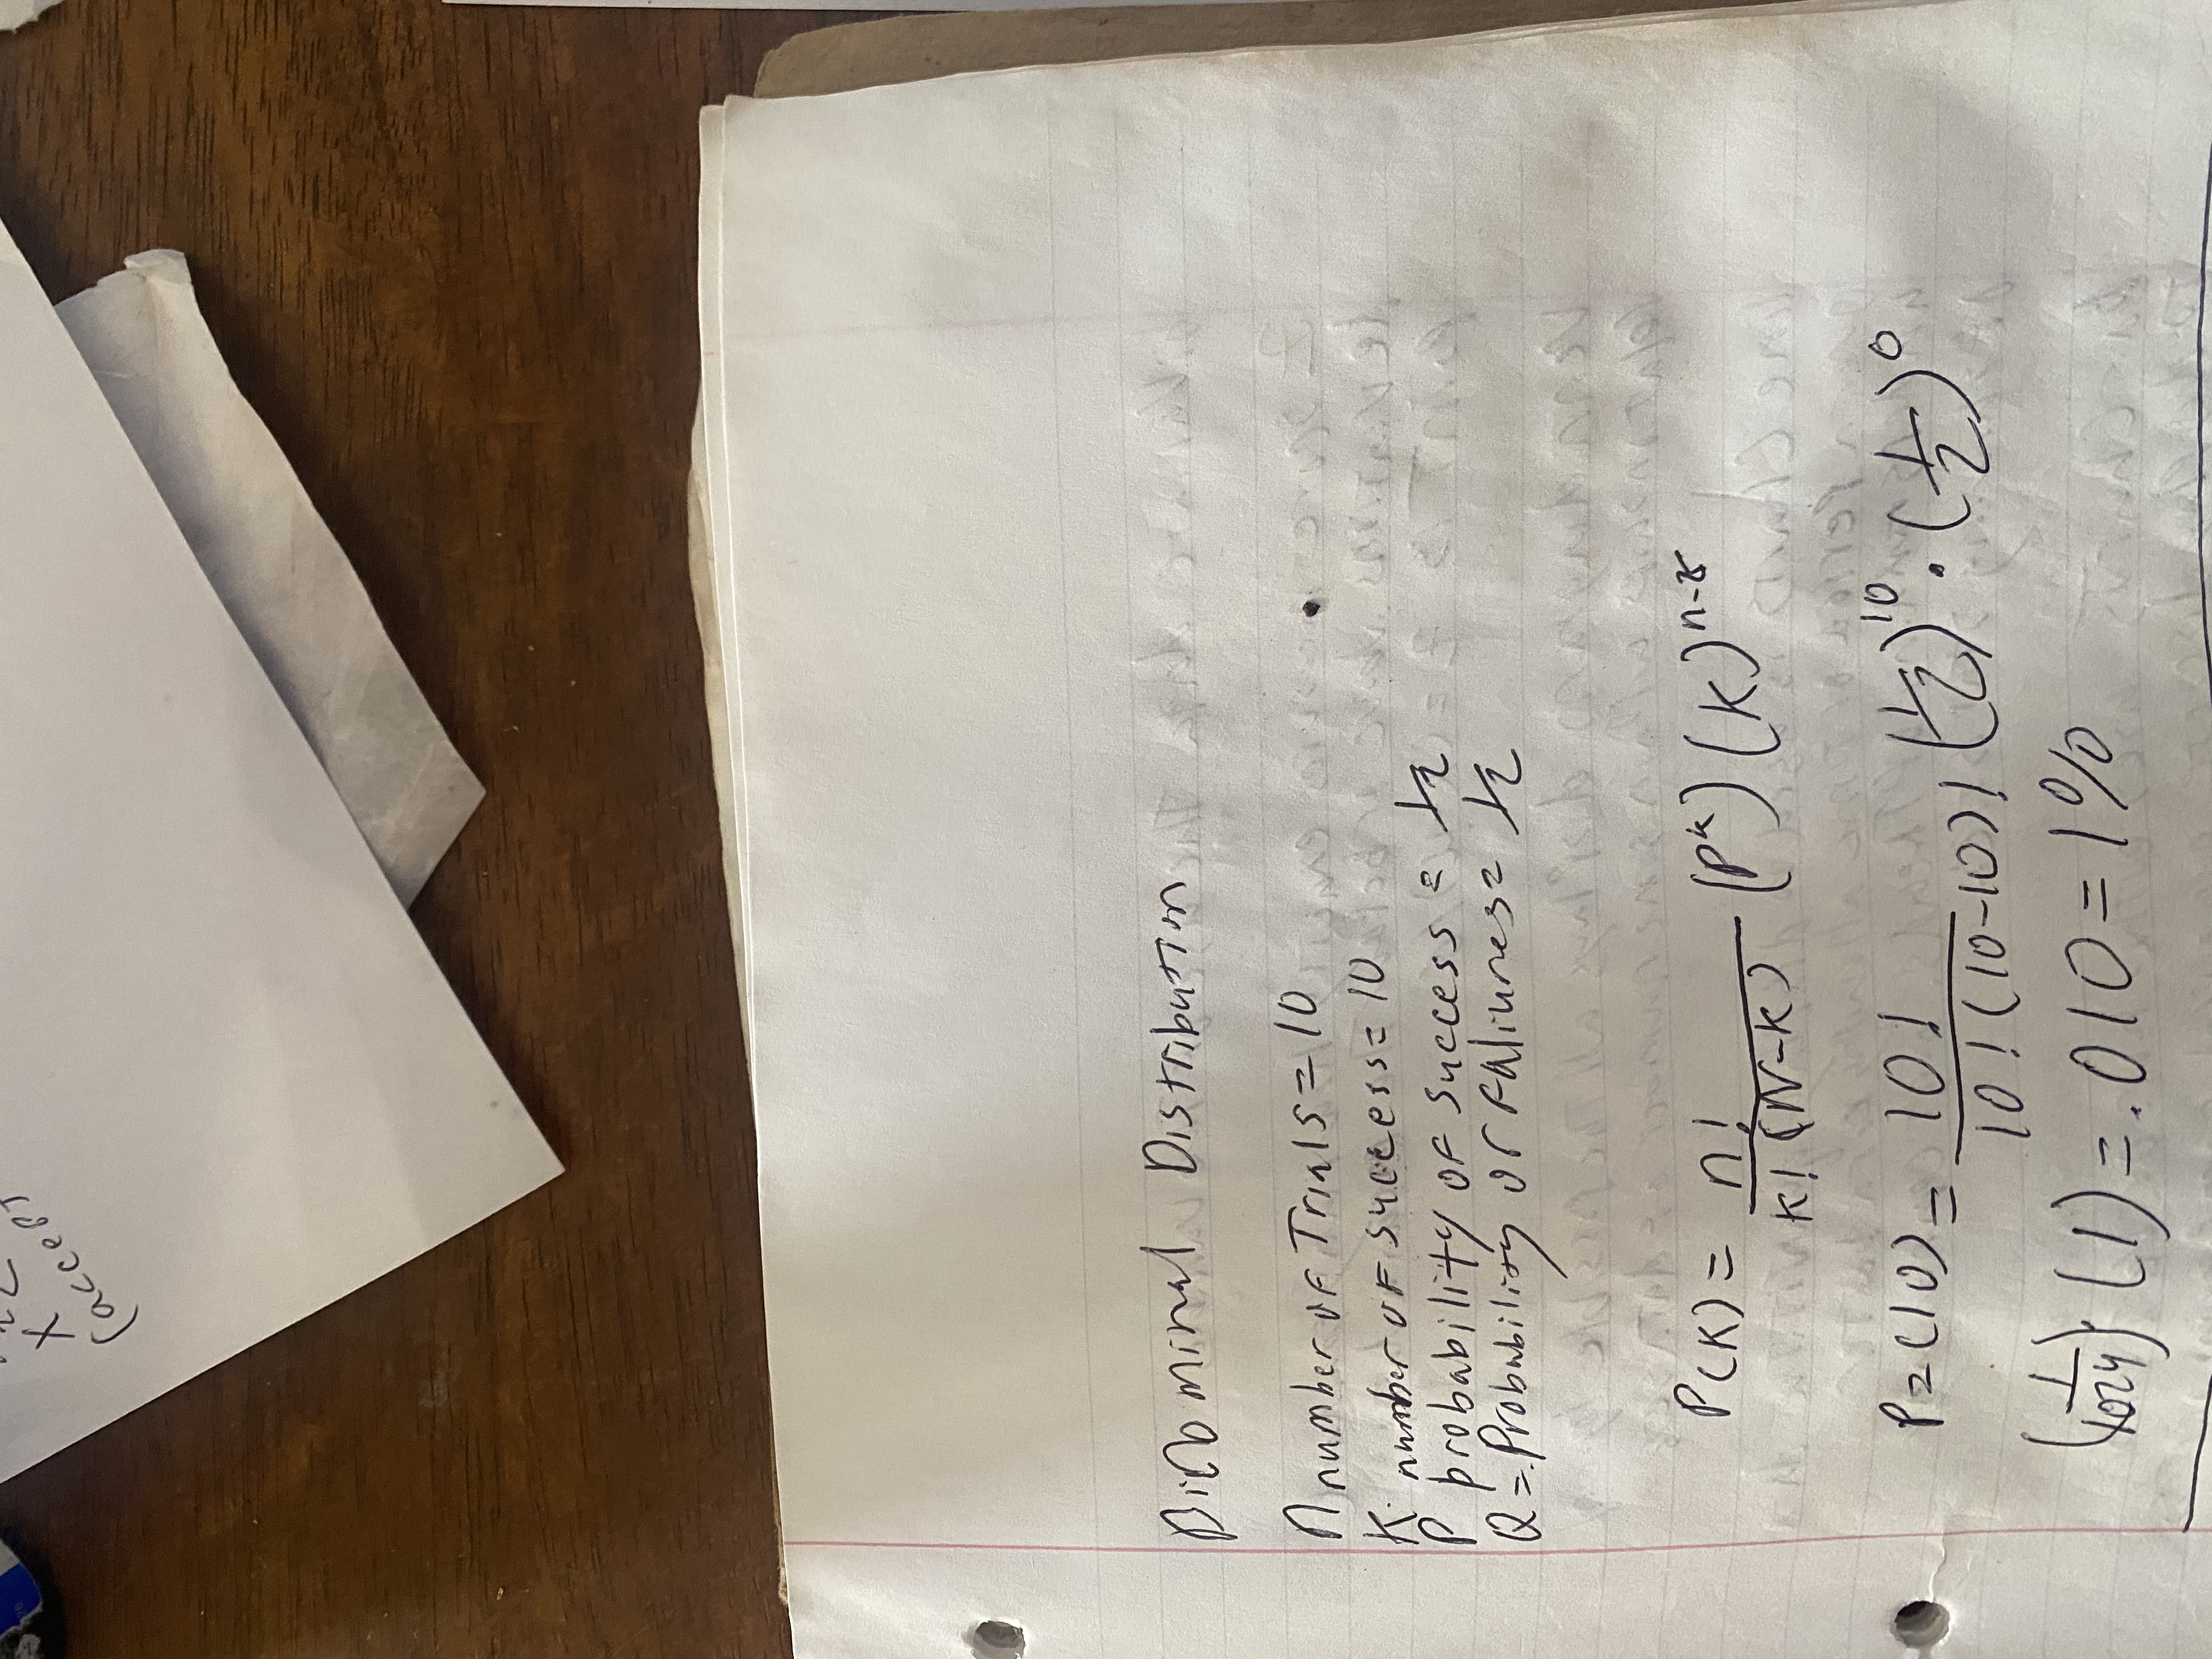 X
(accept
Binominal Distribution
n number of Trials = 10
K number of success = 10
P probability of success = 1/2
Q = Probability of faliures = 1/2
P(K) = n! / k! (N-K) (P^k) (K)^n-k
P=(10) = 10! / 10! (10-10)! (1/2)^10 · (1/2)^0
(1/1024) · (1) = .010 = 1%